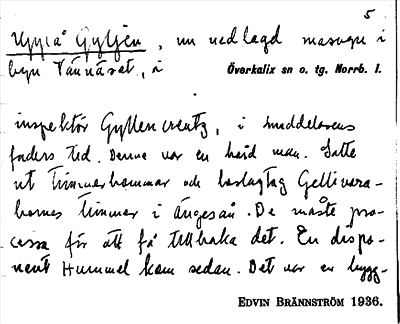 5
Uppå Gyljen, nu nedlagd masugn i
byn Vännäset, i Överkalix sn o. tg. Norrb. l.
inspektör Gyllencreutz, i meddelarens
faders tid. Denne var en hård man. Satte
ut timmerhammar och beslagtag Gellivara-
bornes timmer i Ängesån. De måste pro-
cessa för att få tillbaka det. En dispo-
nent Hummel kom sedan. Det var en bygg-
EDVIN BRÄNNSTRÖM 1936.